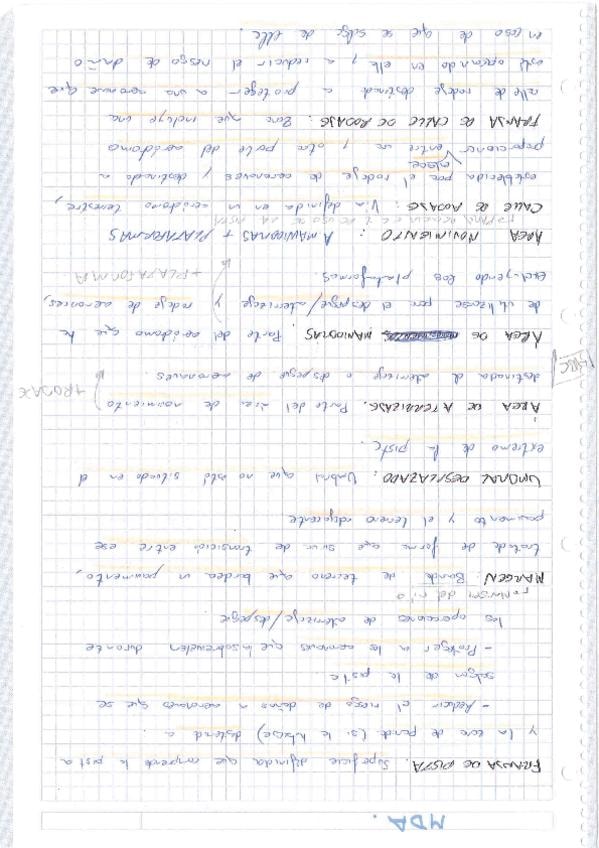 MDA.
FRANJA DE PISTA. Superficie definida que comprende la pista
y la zona de parada (si la hubiese) destinada a:
- Reducir el riesgo de daños a aeronaves que se
salgan de la pista
- Proteger a las aeronaves que la sobrevuelen durante
las operaciones de aterrizaje/despegue
MARGEN. Banda de terreno que bordea un pavimento,
tratada de forma que sirva de transición entre ese
pavimento y el terreno adyacente
UMBRAL DESPLAZADO: Umbral que no está situado en el
extremo de la pista.
ÁREA DE ATERRIZAJE. Parte del área de movimiento
destinada al aterrizaje o despegue de aeronaves
+RODAJE
ÁREA DE MANIOBRAS. Parte del aeródromo que ha
de utilizarse para el despegue/aterrizaje y rodaje de aeronaves,
excluyendo las plataformas.
+PLATAFORMA
ÁREA MOVIMIENTO: A MANIOBRAS + PLATAFORMAS
CALLE DE RODAJE: Vía definida en un aeródromo terrestre,
establecida para el rodaje de aeronaves y destinada a
proporcionar enlace entre una y otra parte del aeródromo
FRANJA DE CALLE DE RODAJE: Zona que incluye una
calle de rodaje destinada a proteger a una aeronave que
está operando en ella y a reducir el riesgo de daño
en caso de que se salga de ella.